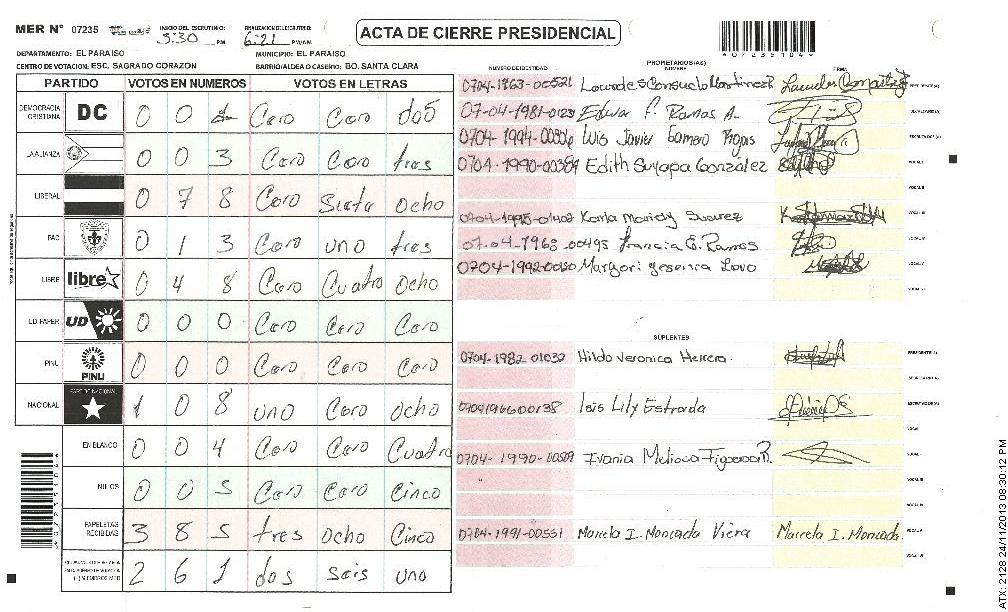 MER Nº 07235 INICIO DEL ESCRUTINIO: 5:30 PM FINALIZACION DEL ESCRUTINIO: 6:21 PM/AM
ACTA DE CIERRE PRESIDENCIAL
DEPARTAMENTO: EL PARAISO MUNICIPIO: EL PARAISO
CENTRO DE VOTACION: ESC. SAGRADO CORAZON BARRIO/ALDEA O CASERIO: BO. SANTA CLARA
PARTIDO VOTOS EN NUMEROS VOTOS EN LETRAS
DEMOCRACIA CRISTIANA DC 0 0 2 Cero Cero dos
LA ALIANZA 0 0 3 Cero Cero tres
LIBERAL 0 7 8 Cero Siete Ocho
PAC 0 1 3 Cero uno tres
LIBRE libre 0 4 8 Cero Cuatro Ocho
UD-FAPER UD 0 0 0 Cero Cero Cero
PINU PINU 0 0 0 Cero Cero Cero
NACIONAL PARTIDO NACIONAL 1 0 8 uno Cero ocho
EN BLANCO 0 0 4 Cero Cero Cuatro
NULOS 0 0 5 Cero Cero Cinco
PAPELETAS RECIBIDAS 3 8 5 tres ocho Cinco
2 6 1 dos seis uno
NUMERO DE IDENTIDAD PROPIETARIOS(AS) NOMBRE FIRMA
0704-1763-00521 Lourdes Consuelo Martinez PRESIDENTE(A)
07-04-1981-0123 Edwar F. Ramos A. SECRETARIO(A)
0704-1994-00306 Luis Javier Gamero Rojas ESCRUTADOR(A)
0704-1990-00389 Edith Suyapa Gonzalez VOCAL I
VOCAL II
0704-1995-01402 Karla Mariely Suarez VOCAL III
07-04-1963-00495 Francia E. Ramos VOCAL IV
Margori Yesenia Lovo VOCAL V
VOCAL VI
SUPLENTES
0704-1982-01032 Hilda Veronica Herrera PRESIDENTE(A)
SECRETARIO(A)
0704196600138 Lois Lily Estrada ESCRUTADOR(A)
VOCAL I
0704-1990-00509 Ivania Melissa Figueroa R. VOCAL II
VOCAL III
VOCAL IV
0704-1991-00551 Marcela I. Moncada Viera Marcela I. Moncada VOCAL V
VOCAL VI
ATX: 2128 24/11/2013 08:30:12 PM